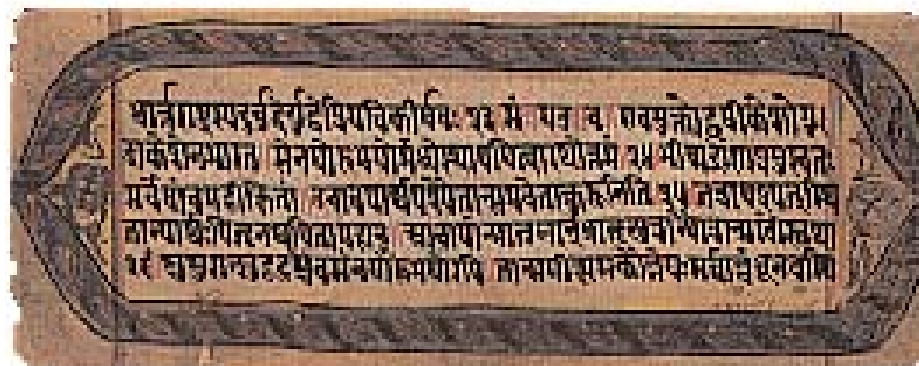 धार्तराष्ट्रस्यदुर्बुद्धेर्युद्धेप्रियचिकीर्षवः २३ सं य उ व एवमुक्तोहृषीकेशोगु।
डाकेशेनभारत सेनयोरुभयोर्मध्येस्थापयित्वारथोत्तमं २४ भीष्मद्रोणप्रमुखतः
सर्वेषांचमहीक्षितां उवाचपार्थपश्यैतान्समवेतान्कुरूनिति २५ तत्रापश्यत्स्थि
तान्पार्थःपितॄनथपितामहान् आचार्यान्मातुलान्भ्रातॄन्पुत्रान्पौत्रान्सखींस्तथा
२६ श्वशुरान्सुहृदश्चैवसेनयोरुभयोरपि तान्समीक्ष्यसकौंतेयःसर्वान्बंधूनवस्थि